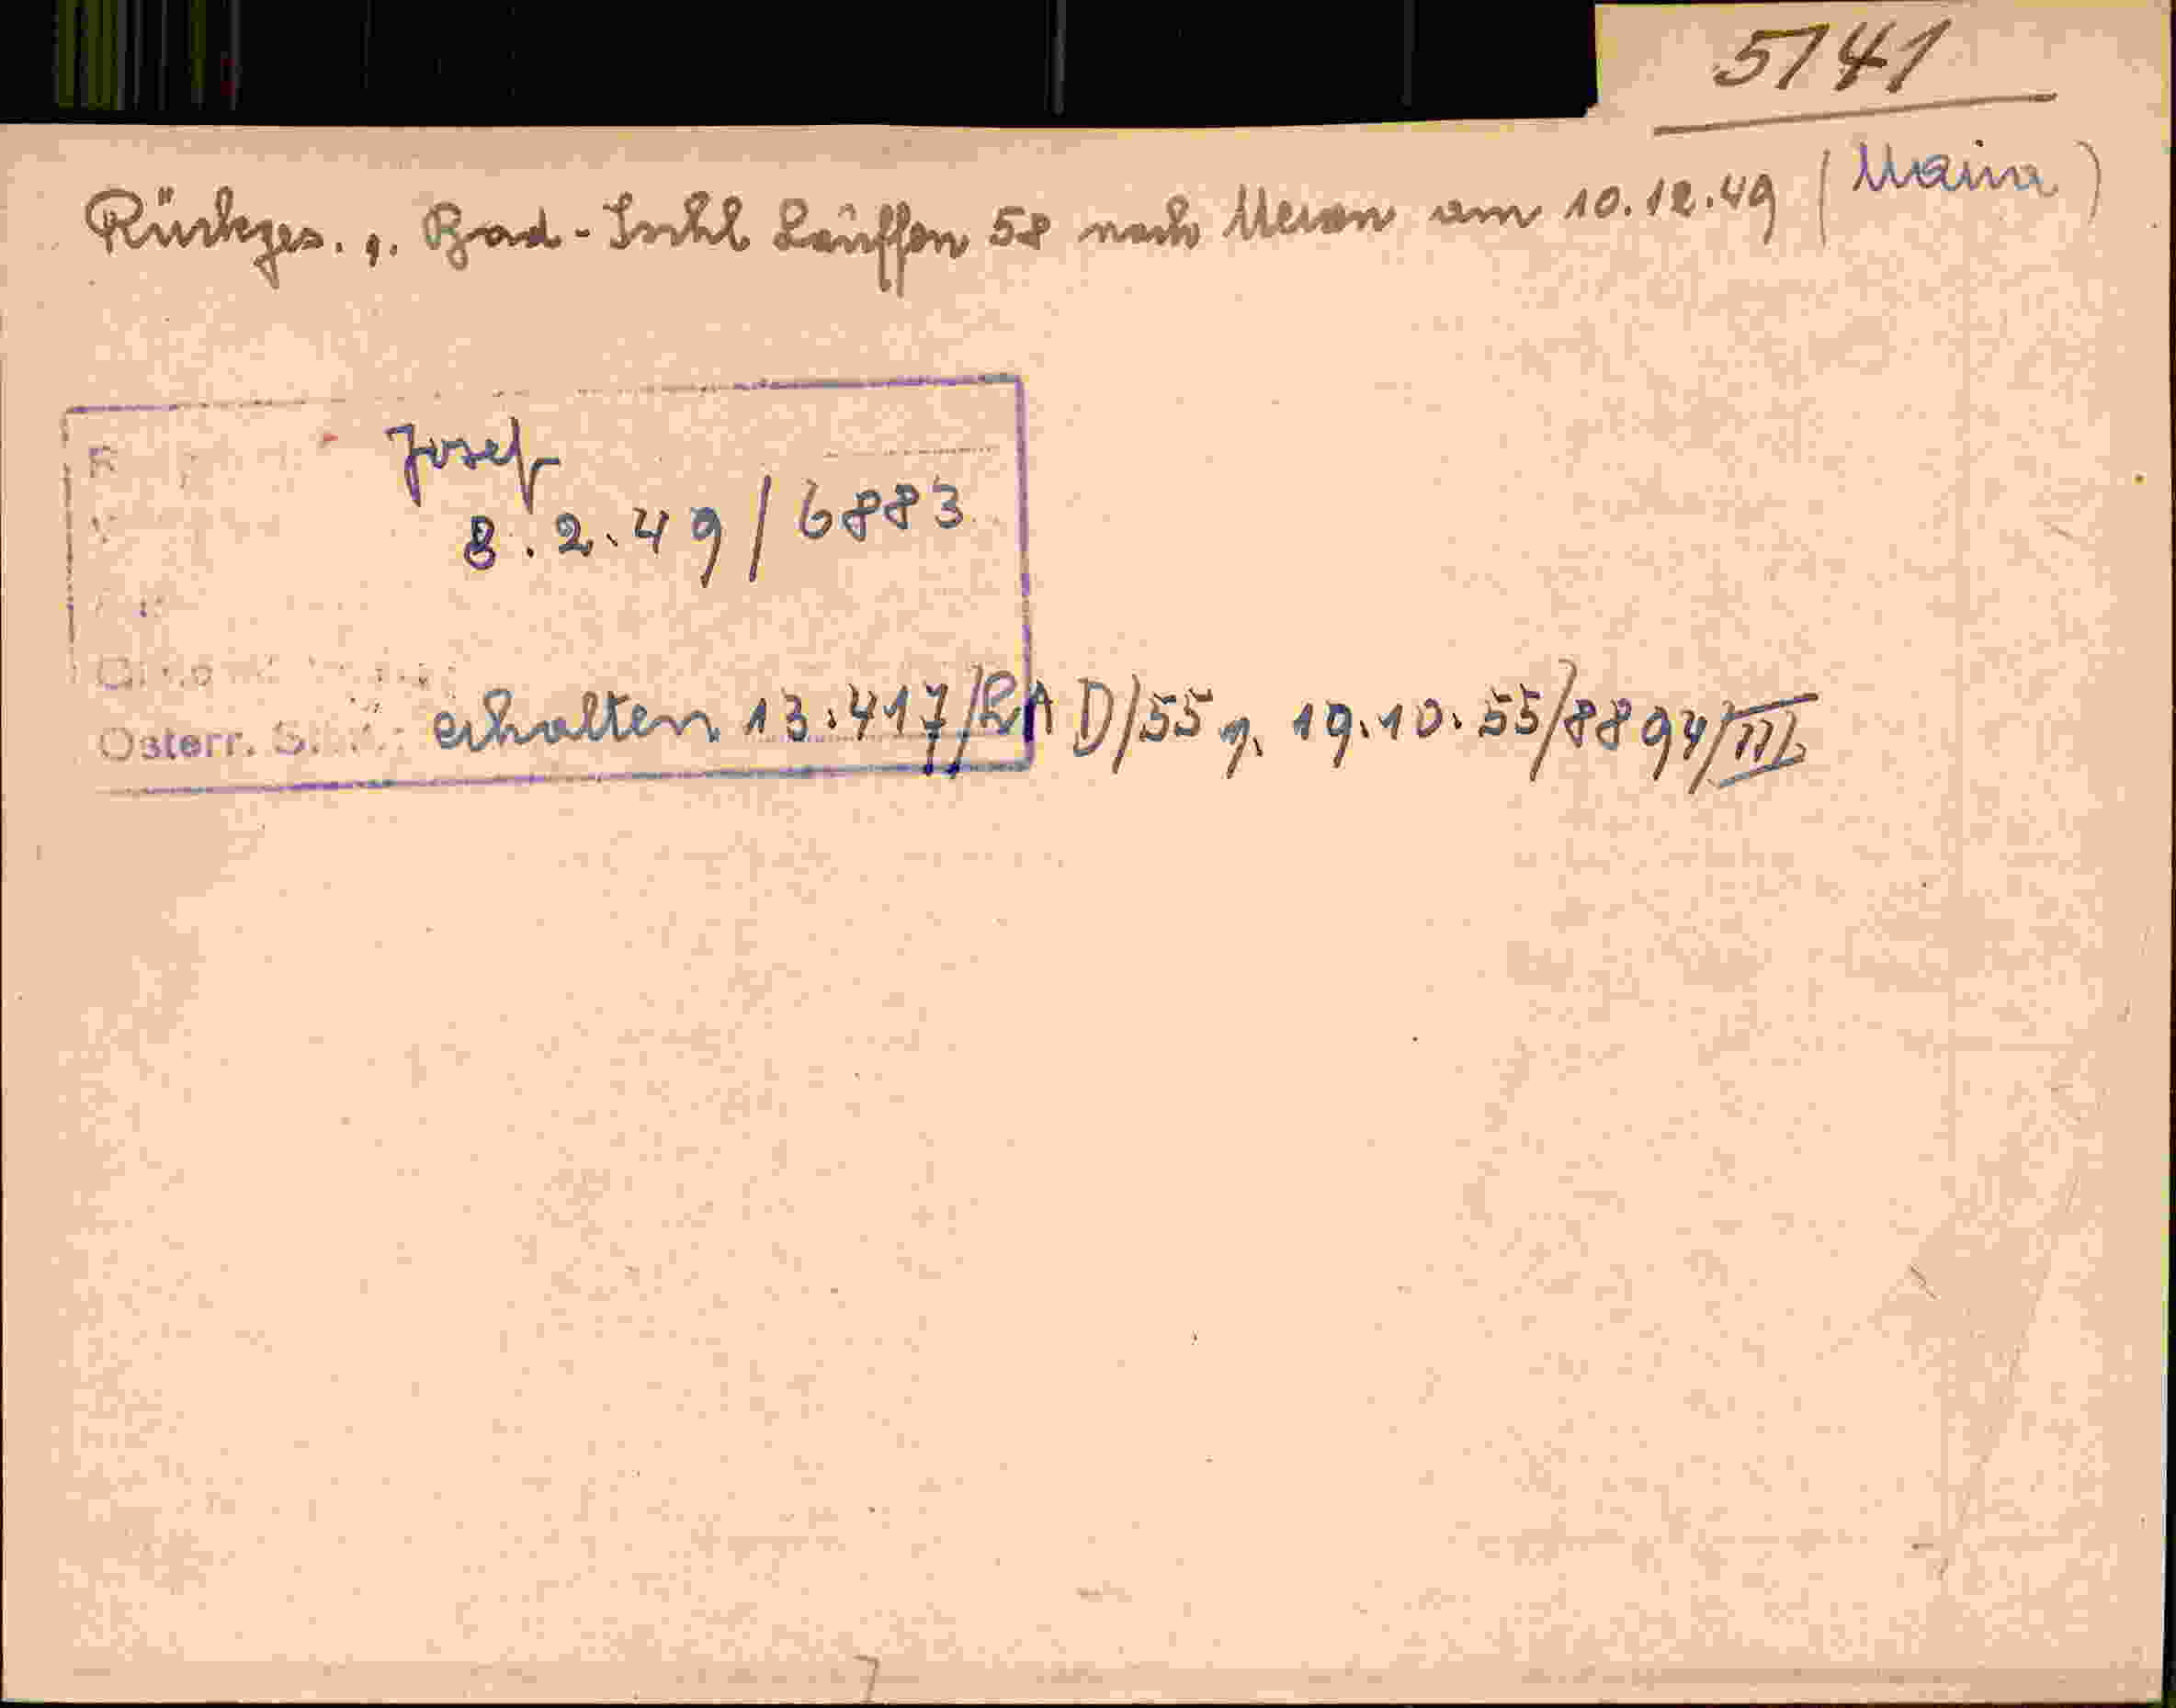 5141
Rückges. v. Bad-Ischl Lauffen 58 nach Meran am 10.12.49 (Maira)
Josef
8.2.49/6883
Österr. erhalten 13.417/RAD/55 v. 19.10.55/8894/III